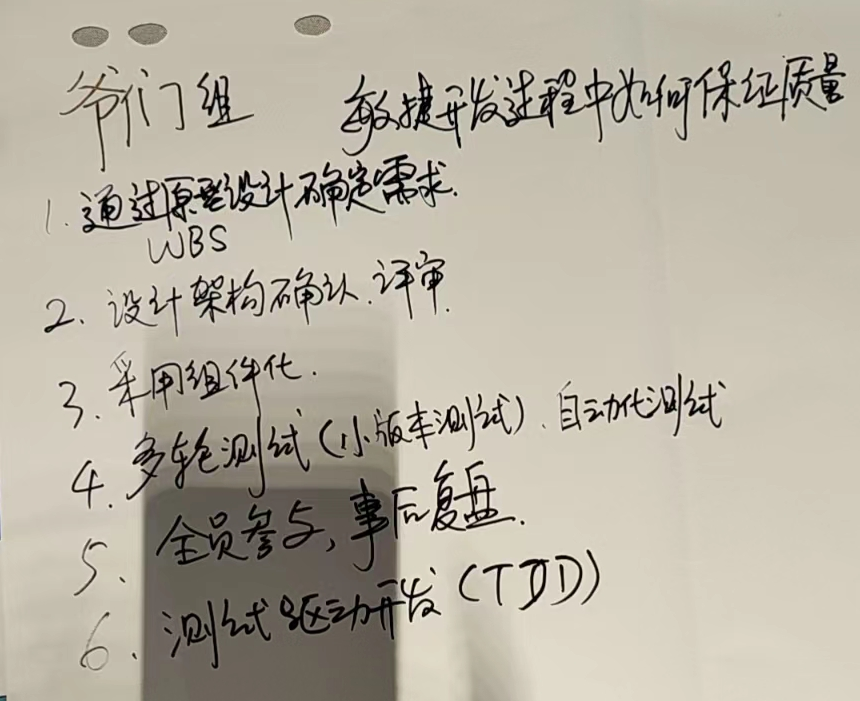 爷们组 敏捷开发过程中如何保证质量
1. 通过原型设计确定需求.
WBS
2. 设计架构确认.评审.
3. 采用组件化.
4. 多轮测试(小版本测试).自动化测试
5. 全员参与,事后复盘.
6. 测试驱动开发(TDD)